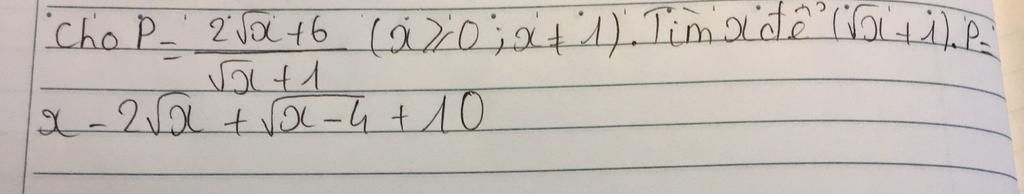 Cho P = \frac{2\sqrt{x}+6}{\sqrt{x}+1} (x ⩾ 0 ; x ≠ 1). Tìm x để (\sqrt{x}+1).P =
x - 2\sqrt{x} + \sqrt{x-4} + 10